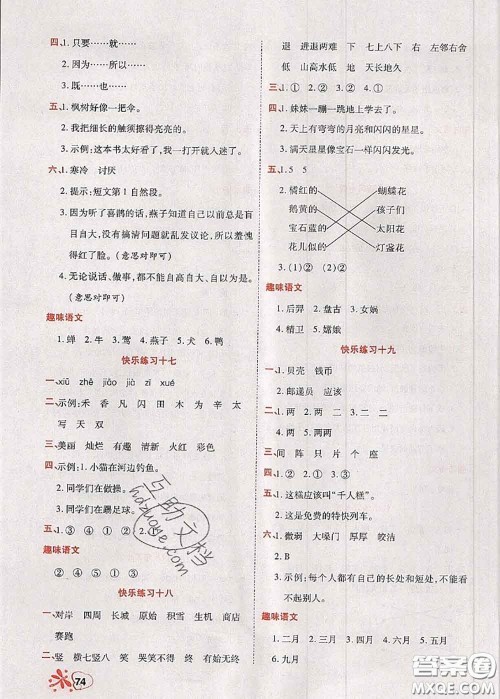 四、1. 只要……就……
2. 因为……所以……
3. 既……也……
五、1. 枫树好像一把伞。
2. 我把细长的触须擦得亮亮的。
3. 示例：这本书太好看了，我一打开就入迷了。
六、1. 寒冷 讨厌
2. 提示：短文第 1 自然段。
3. 因为听了喜鹊的话，燕子知道自己以前总是盲
目自大，没有搞清问题就乱发议论，所以羞愧
得红了脸。（意思对即可）
4. 无论说话、做事，都不能自高自大、自以为是。
（意思对即可）
趣味语文
1. 蝉 2. 牛 3. 莺 4. 燕子 5. 犬 6. 鸭
快乐练习十七
一、xiū zhě jiāo jiào zǐ xué
二、示例：禾 香 凡 闪 田 木 为 辛 太
写 天 双
三、美丽 灿烂 有趣 清新 火红 彩色
四、示例：1. 小猫在河边钓鱼。
2. 同学们在做操。
3. 同学们在踢足球。
五、③ ④ ① ② 2. ①
趣味语文
② ④ ⑤ ① ③
快乐练习十八
一、对岸 四周 长城 原始 积雪 生机 商店
赛跑
二、竖 横七竖八 笑 哭笑不得 笑 破涕为笑
74
退 进退两难 下 七上八下 右 左邻右舍
低 山高水低 地 天长地久
三、1. ① 2. ② 3. ② 4. ①
四、1. 妹妹一蹦一跳地上学去了。
2. 天上有弯弯的月亮和闪闪的星星。
3. 满天星星像宝石一样闪闪发光。
五、1. 5 5
2. 橘红的 蝴蝶花
鹅黄的 孩子们
宝石蓝的 太阳花
花儿似的 灯盏花
3. （1）② （2）②
趣味语文
1. 后羿 2. 盘古 3. 女娲
4. 精卫 5. 嫦娥
快乐练习十九
一、1. 贝壳 钱币
2. 邮递员 应该
二、1. 两 2. 两 二 3. 二 二
三、间 阵 只 片 个 座
四、1. ② 2. ① 3. ②
五、1. 这糕应该叫“千人糕”。
2. 这是免费的特快列车。
六、1. 微弱 大嗓门 厚厚 皎洁
2. B
3. 示例：每个人都有自己的长处和短处，不能看
不起别人。
趣味语文
1. 二月 2. 三月 3. 四月 4. 五月 5. 六月
6. 九月
互助文档
hdzuoye.com
答案圈
MXQE.COM